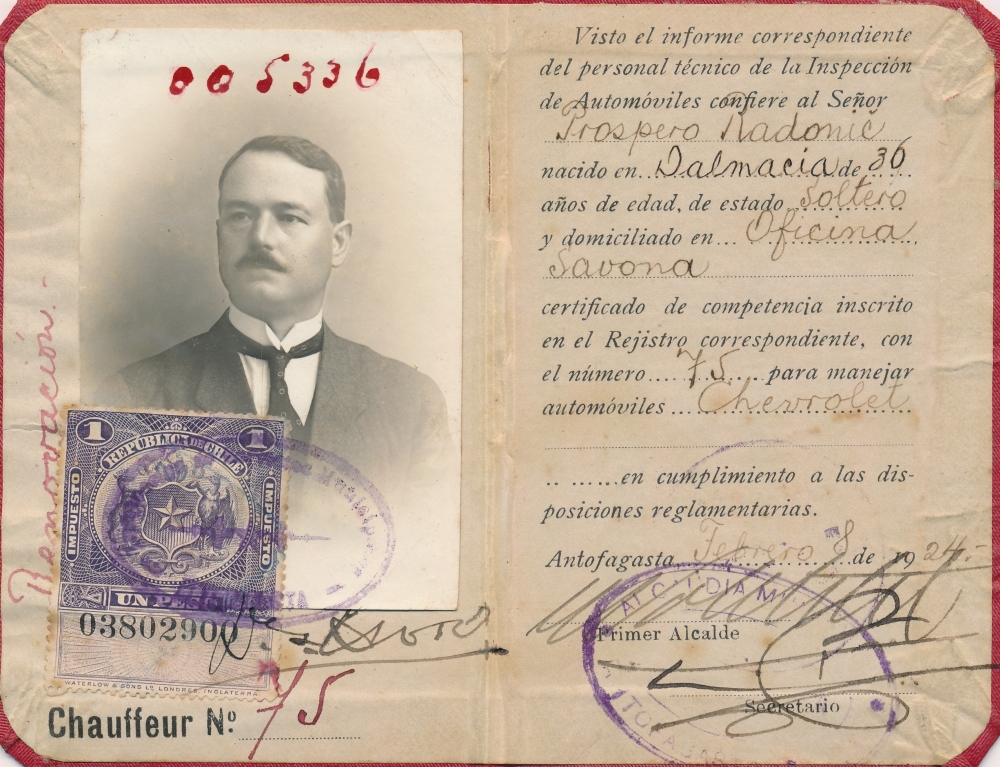 005336
Renovación.-
1 1
REPÚBLICA DE CHILE
IMPUESTO IMPUESTO
UN PESO
03802900
WATERLOW & SONS LD LONDRES, INGLATERRA
Chauffeur Nº 75
Visto el informe correspondiente
del personal técnico de la Inspección
de Automóviles confiere al Señor
Prospero Radonić
nacido en Dalmacia de 36
años de edad, de estado Soltero
y domiciliado en Oficina
Savona
certificado de competencia inscrito
en el Rejistro correspondiente, con
el número 75 para manejar
automóviles Chevrolet
en cumplimiento a las dis-
posiciones reglamentarias.
Antofagasta Febrero 8 de 1924.-
ALCALDIA M
Primer Alcalde
Secretario